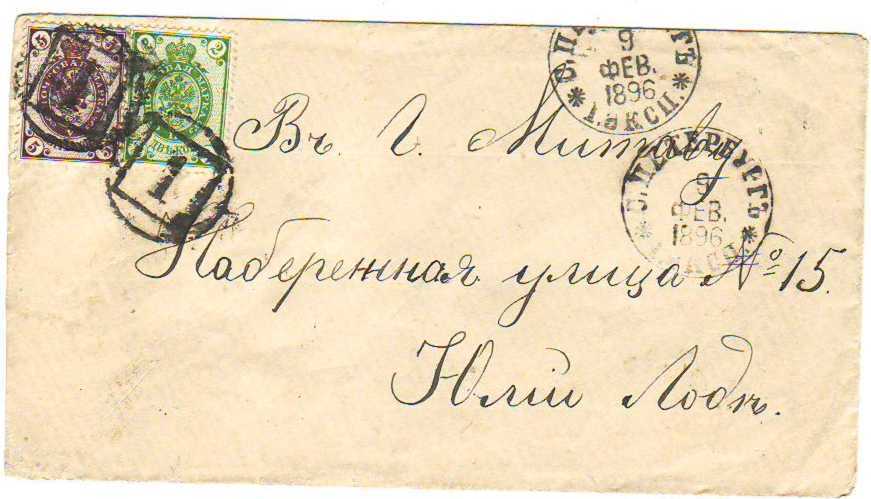 5 5
ПОЧТОВАЯ МАРКА
5 5
2 2
ПОЧТОВАЯ МАРКА
2 ДВѢ КОП. 2
1
С.ПЕТЕРБУРГЪ
9
ФЕВ.
1896
1 ЭКСП.
С.ПЕТЕРБУРГЪ
9
ФЕВ.
1896
Въ Г. Митаву
Набережная улица № 15.
Юлiи Лодъ.